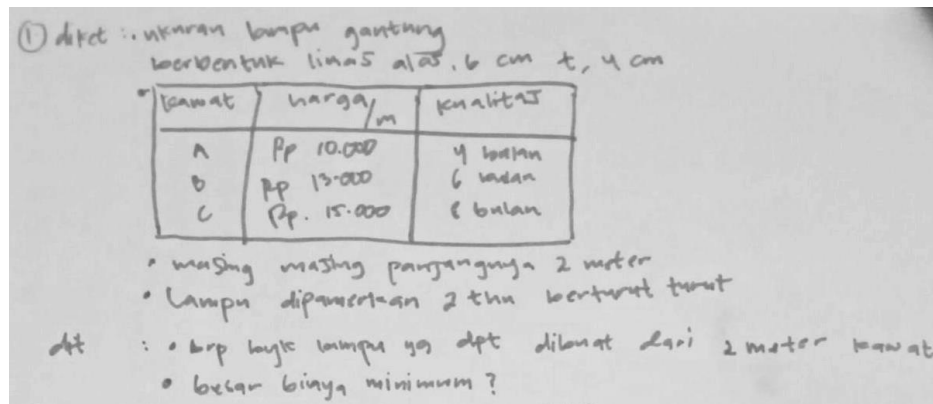 ① diket : • ukuran lampu gantung
berbentuk limas alas, 6 cm t, 4 cm
• kawat harga/m kualitas
A Rp 10.000 4 bulan
B Rp 13.000 6 bulan
C Rp. 15.000 8 bulan
• masing masing panjangnya 2 meter
• Lampu dipamerkan 2 thn berturut turut
dit : • brp byk lampu yg dpt dibuat dari 2 meter kawat
• besar biaya minimum ?